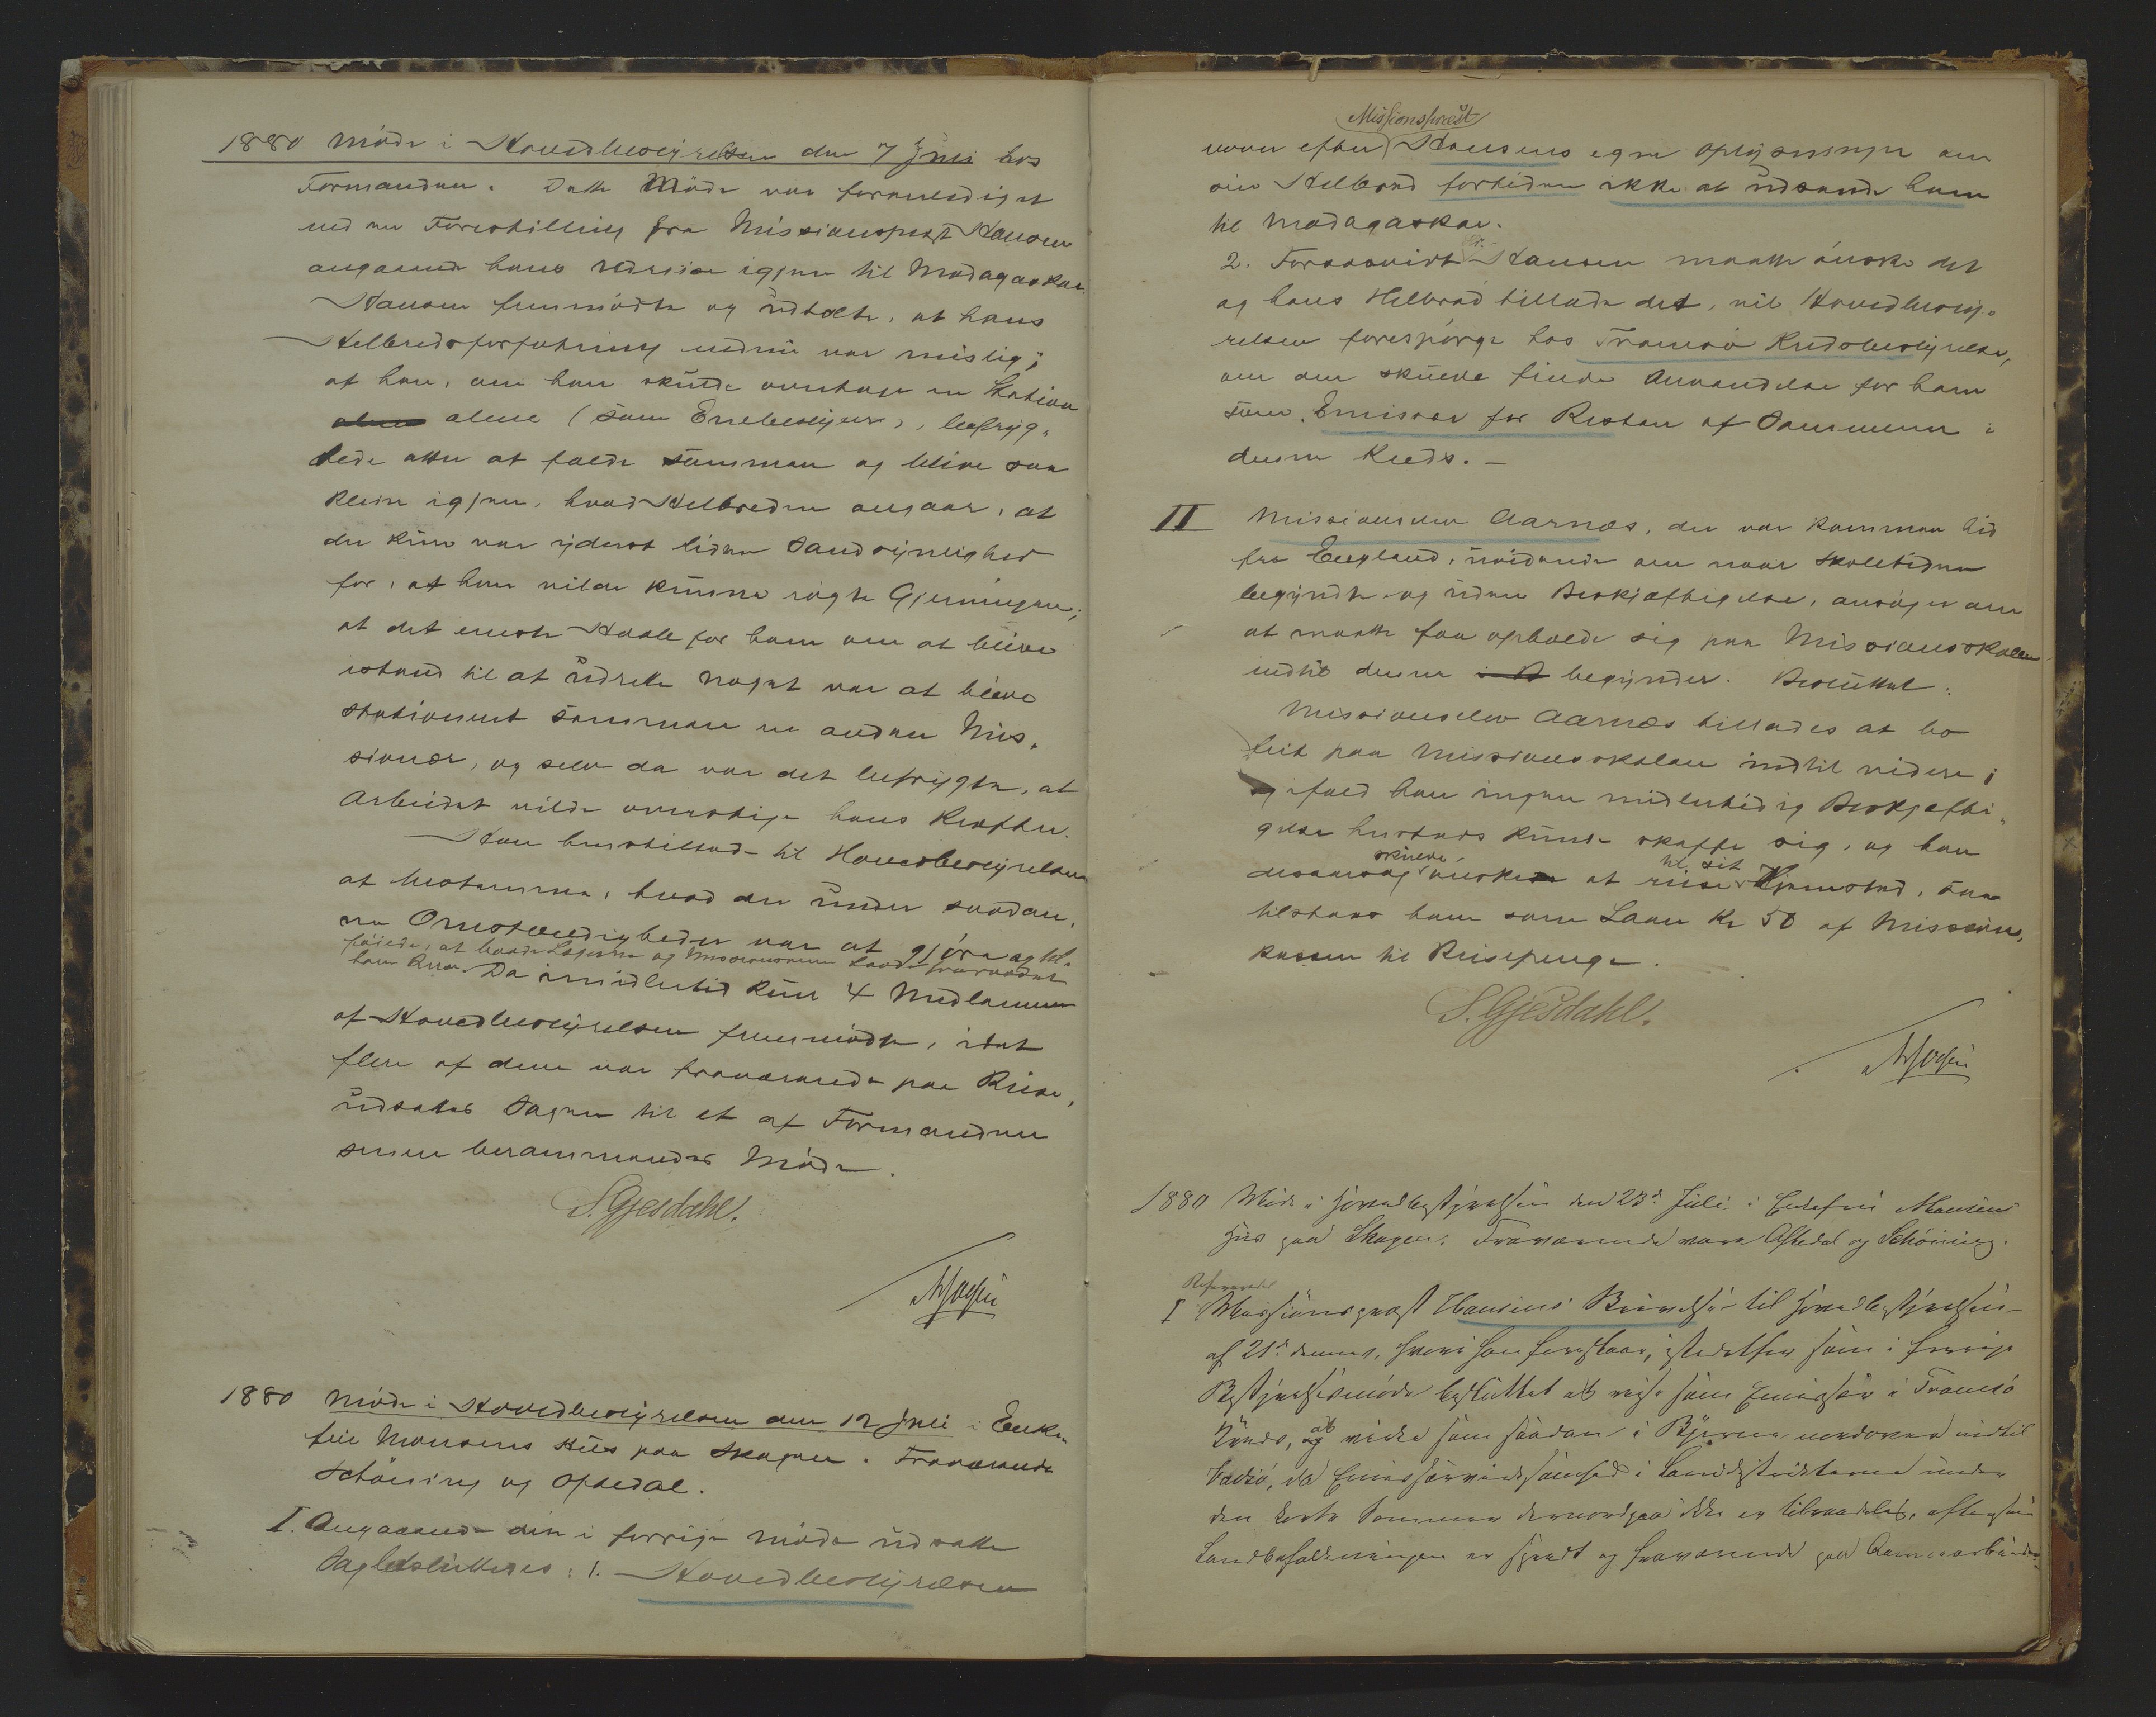 1880 Møde i Hovedbestyrelsen den 7 Juli hos
Formanden. Dette Møde var foranlediget
ved en Forestilling fra Missionsprest Hansen
angaaende hans Udreise igjen til Madagaskar.
Hansen fremmødte og udtalte, at hans
Helbredsforfatning endnu var mislig;
at han, om han skulde overtage en Station
alene (som Enebestyrer), befryg-
tede atter at falde sammen og blive saa
klein igjen, hvad Helbreden angaar, at
der kun var yderst liden Sandsynlighed
for, at han vilde kunne røgte Gjerningen;
at det eneste Haab for ham om at blive
istand til at udrette noget var at blive
stationeret sammen en anden Mis-
sionær, og selv da var det befrygte, at
Arbeidet vilde overstige hans Kræfter.
Han henstillede til Hovedbestyrelsen
at bestemme, hvad der under saadan-
ne Omstændigheder var at gjøre og til-
føiede, at baade Lægerne og Missionærerne havde fraraadet
ham Reisen. Da imidlertid kun 4 Medlemmer
af Hovedbestyrelsen fremmødte, idet
flere af dem var fraværende paa Reise,
udsattes Sagen til et af Formanden
senere berammendes Møde.
S. Gjesdahl.
1880 Møde i Hovedbestyrelsen den 12 Juli i Enke-
frue Monsens Hus paa Skagen. Fraværende
Schøning og Opsedal.
I. Angaaende den i forrige Møde udsatte
Sag besluttedes: 1. Hovedbestyrelsen
Missionsprest
vover efter Hansens egne Oplysninger om
sin Helbred fortiden ikke at udsende ham
til Madagaskar.
2. Forsaavidt Hr. Hansen maatte ønske det
og hans Helbred tillade det, vil Hovedbesty-
relsen forespørge hos Tromsø Kredsbestyrelse,
om den skulde finde Anvendelse for ham
som Emissær for Resten af Sommeren i
denne Kreds. –
II Missionselev Aarnæs, der var kommen hid
fra England, uvidende om naar Skoletiden
begyndte og uden Beskjæftigelse, ansøger om
at maatte faa opholde sig paa Missionsskolen
indtil denne begynder. Besluttet:
Missionselev Aarnæs tillades at bo
frit paa Missionsskolen indtil videre;
ifald han ingen midlertidig Beskjæfti-
gelse herstads kunde skaffe sig, og han
desaarsag skulde ønske at reise til sit Hjemsted, saa
tilstaaes ham som Laan Kr 50 af Missions-
kassen til Reisepenge.
S. Gjesdahl.
1880 Møde i Hovedbestyrelsen den 23de Juli i Enkefru Monsens
Hus paa Skagen. Fraværende vare Opsedal og Schøning.
Refereredes
I Missionsprest Hansens Skrivelse til Hovedbestyrelsen
af 21de dennes, hvori han foreslaar, istedetfor som i forrige
Bestyrelsesmøde besluttet at reise som Emissær i Tromsø
Kreds, at virke som saadan i Byerne nordover indtil
Vadsø, da Emissærvirksomhed i Landdistrikterne under
den korte Sommer dernordpaa ikke er tilraadelig, eftersom
Landbefolkningen er spredt og fraværende paa